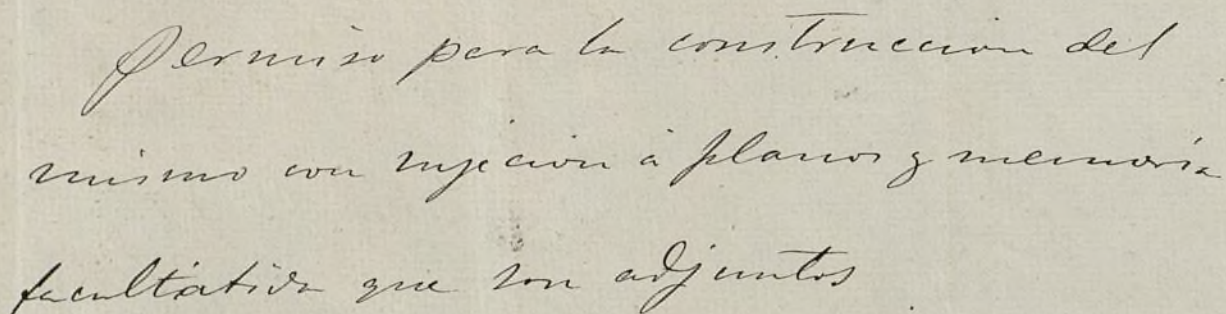 Permiso para la construccion del
mismo con sujecion á planos y memoria
facultativa que son adjuntos